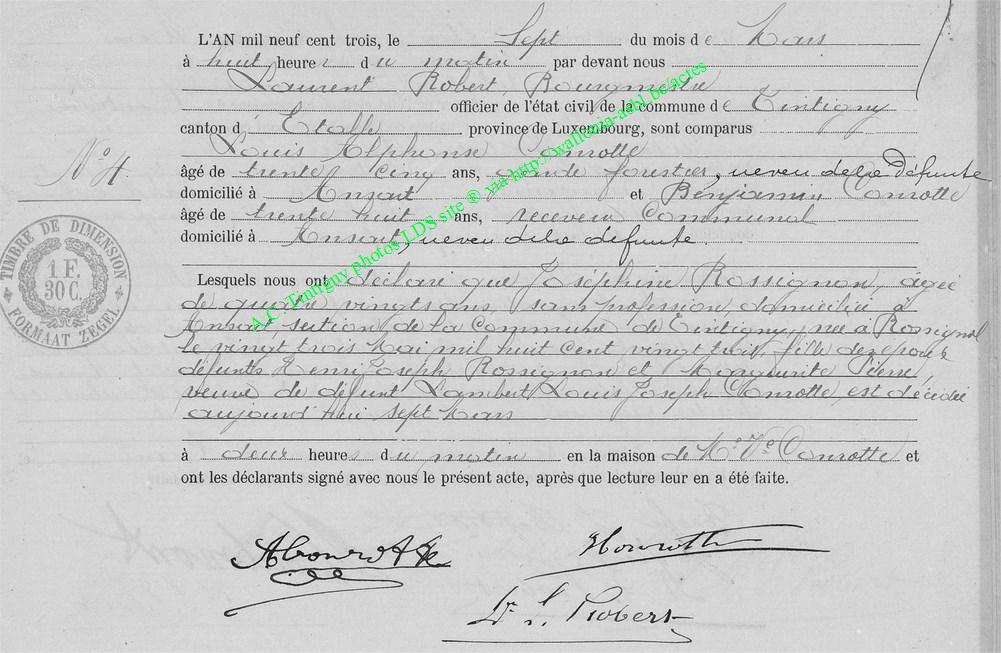 L'AN mil neuf cent trois, le Sept du mois de Mars
à huit heures du matin par devant nous
Laurent Robert, Bourgmestre
officier de l'état civil de la commune de Tintigny
canton d' Etalle province de Luxembourg, sont comparus
Louis Alphonse Conrotte
N° 4.
âgé de trente cinq ans, garde forestier, neveu de la Défunte
domicilié à Ansart et Benjamin Conrotte
âgé de trente huit ans, receveur Communal
domicilié à Ansart, neveu de la défunte.
TIMBRE DE DIMENSION
1 F.
30 C.
FORMAAT ZEGEL
Lesquels nous ont déclaré que Joséphine Rossignon, âgée
de quatre vingts ans, sans profession, domiciliée à
Ansart section de la Commune de Tintigny, née à Rossignol
le vingt trois Mai mil huit cent vingt trois, fille des époux
défunts Henri Joseph Rossignon et Marguerite Pierre,
veuve de défunt Lambert Louis Joseph Conrotte, est décédée
aujourd'hui sept Mars
à deux heures du matin en la maison de Me Ve Conrotte et
ont les déclarants signé avec nous le présent acte, après que lecture leur en a été faite.
A Conrotte
Conrotte
Dr L. Robert
A.C. Tintigny photos LDS site ® via http://wallonia-asbl.be/actes